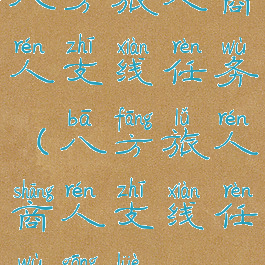 八方旅人商
rén zhī xiàn rèn wù
人支线任务
bā fāng lǚ rén
（八方旅人
shāng rén zhī xiàn rèn
商人支线任
wù gōng lüè